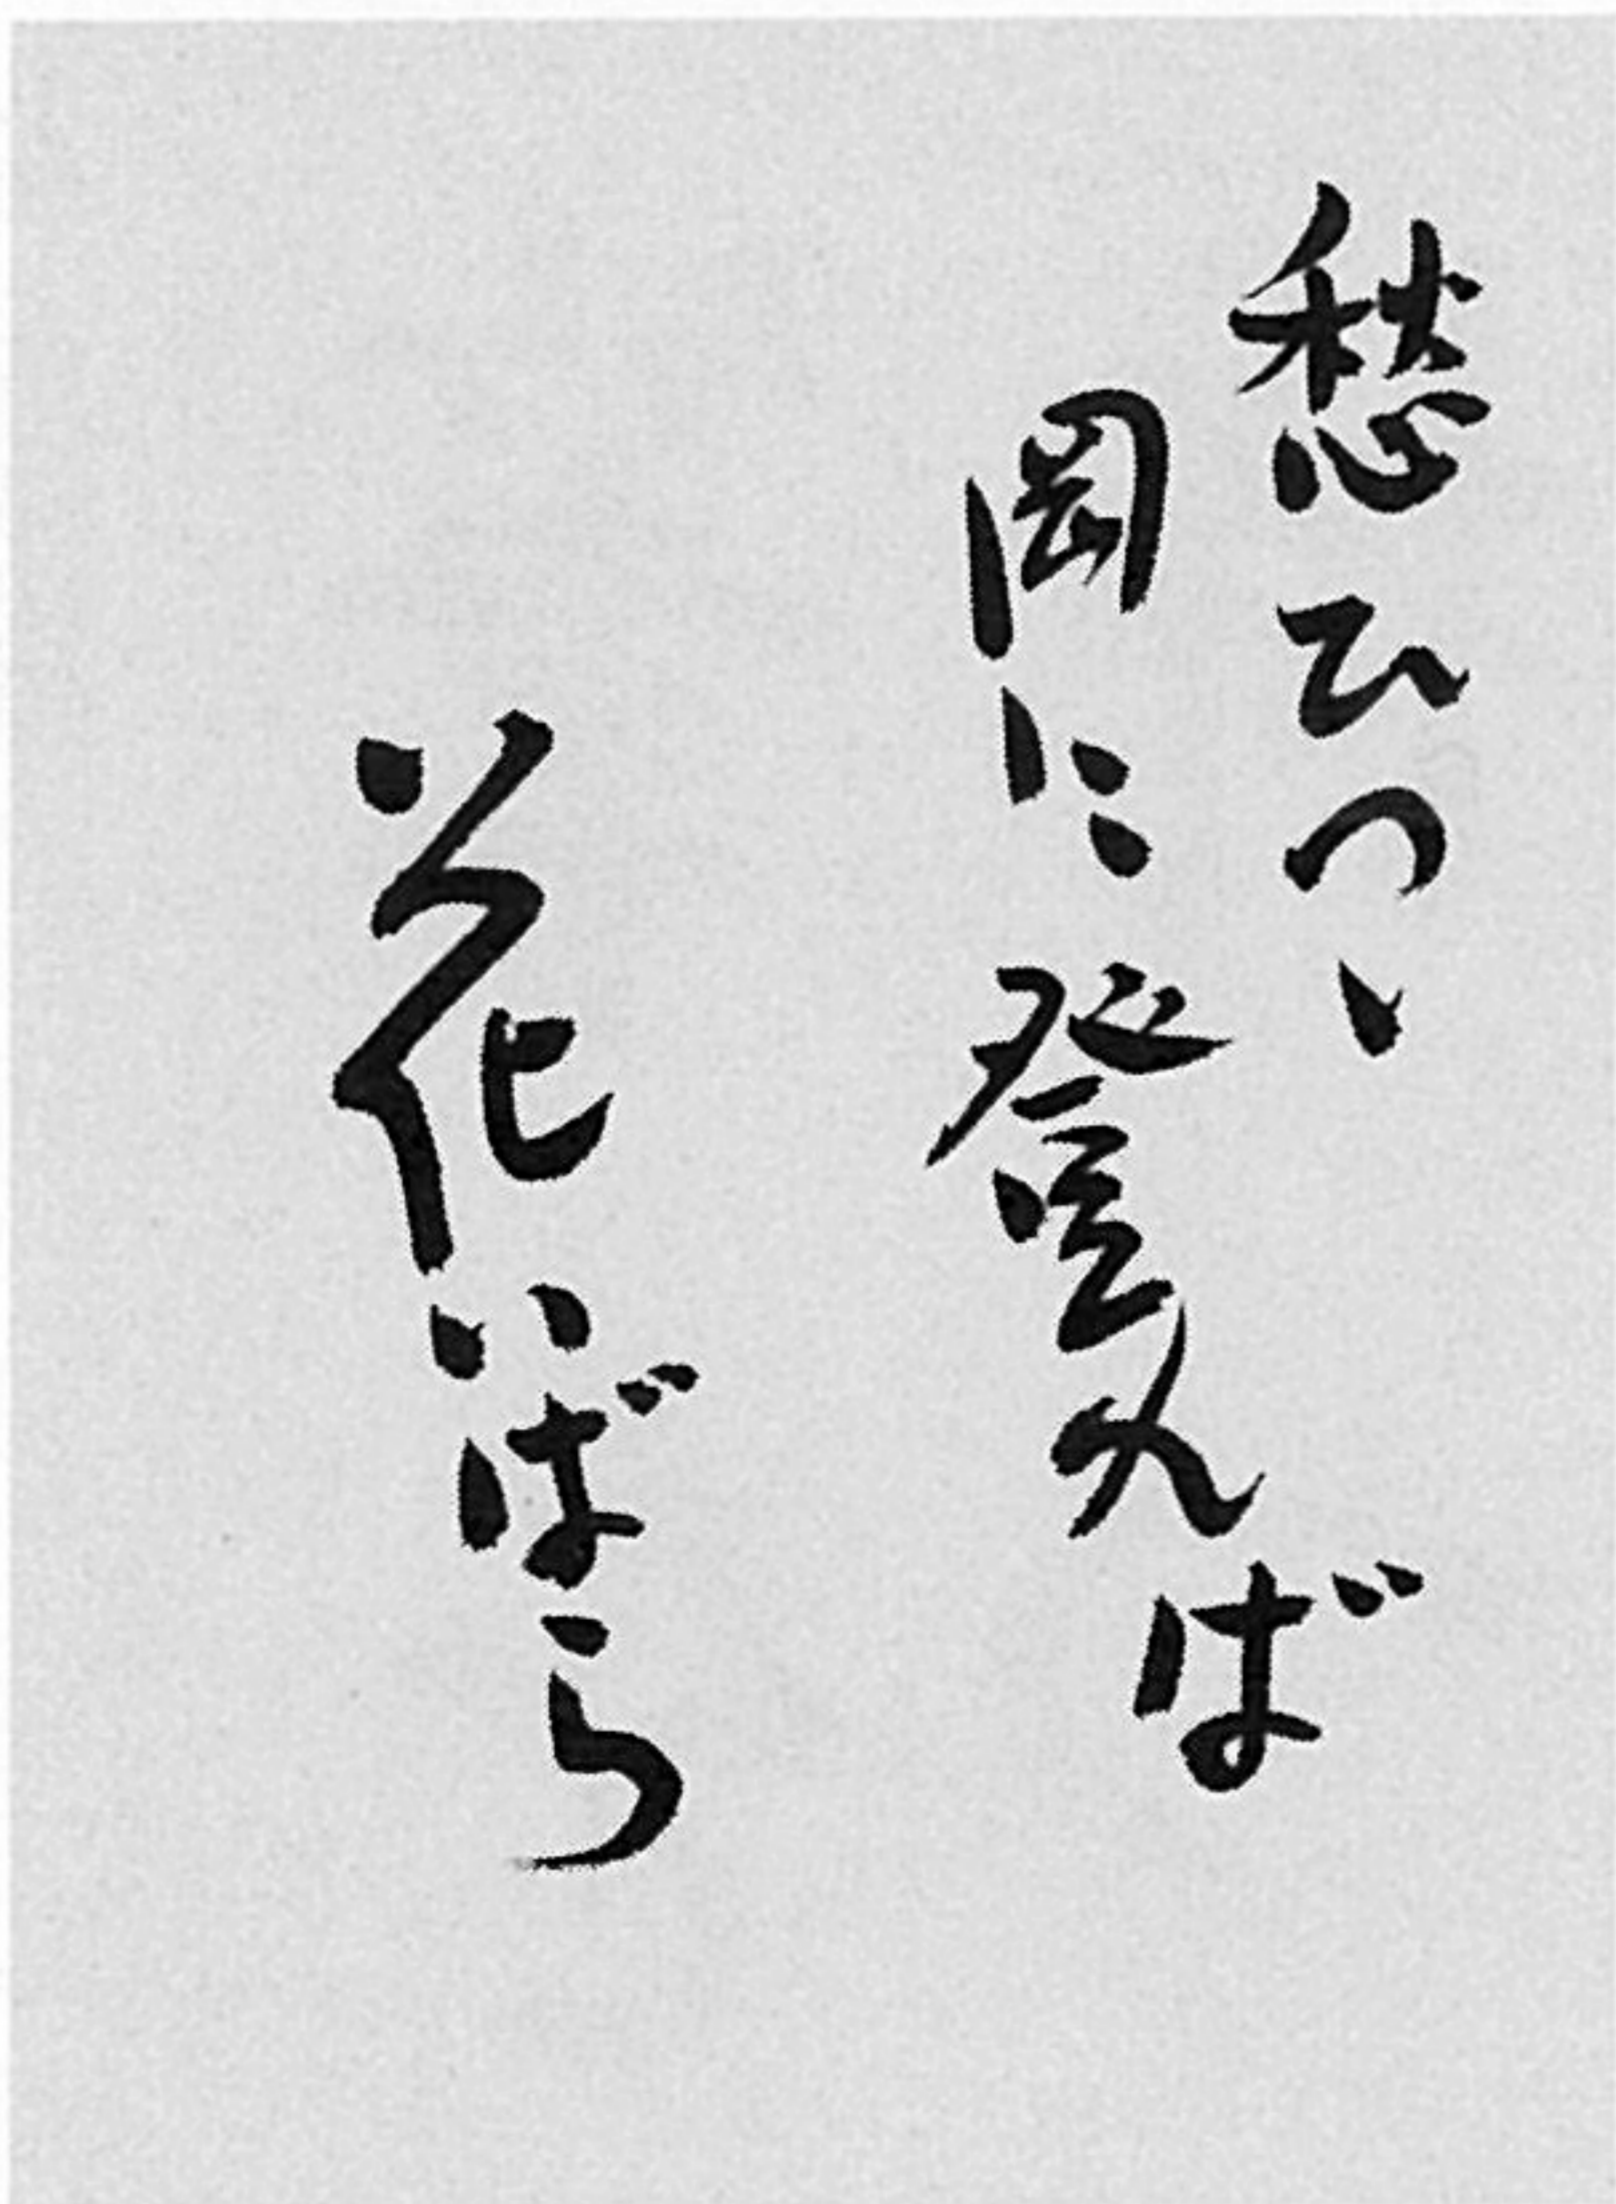 愁ひつゝ
岡に登れば
花いばら